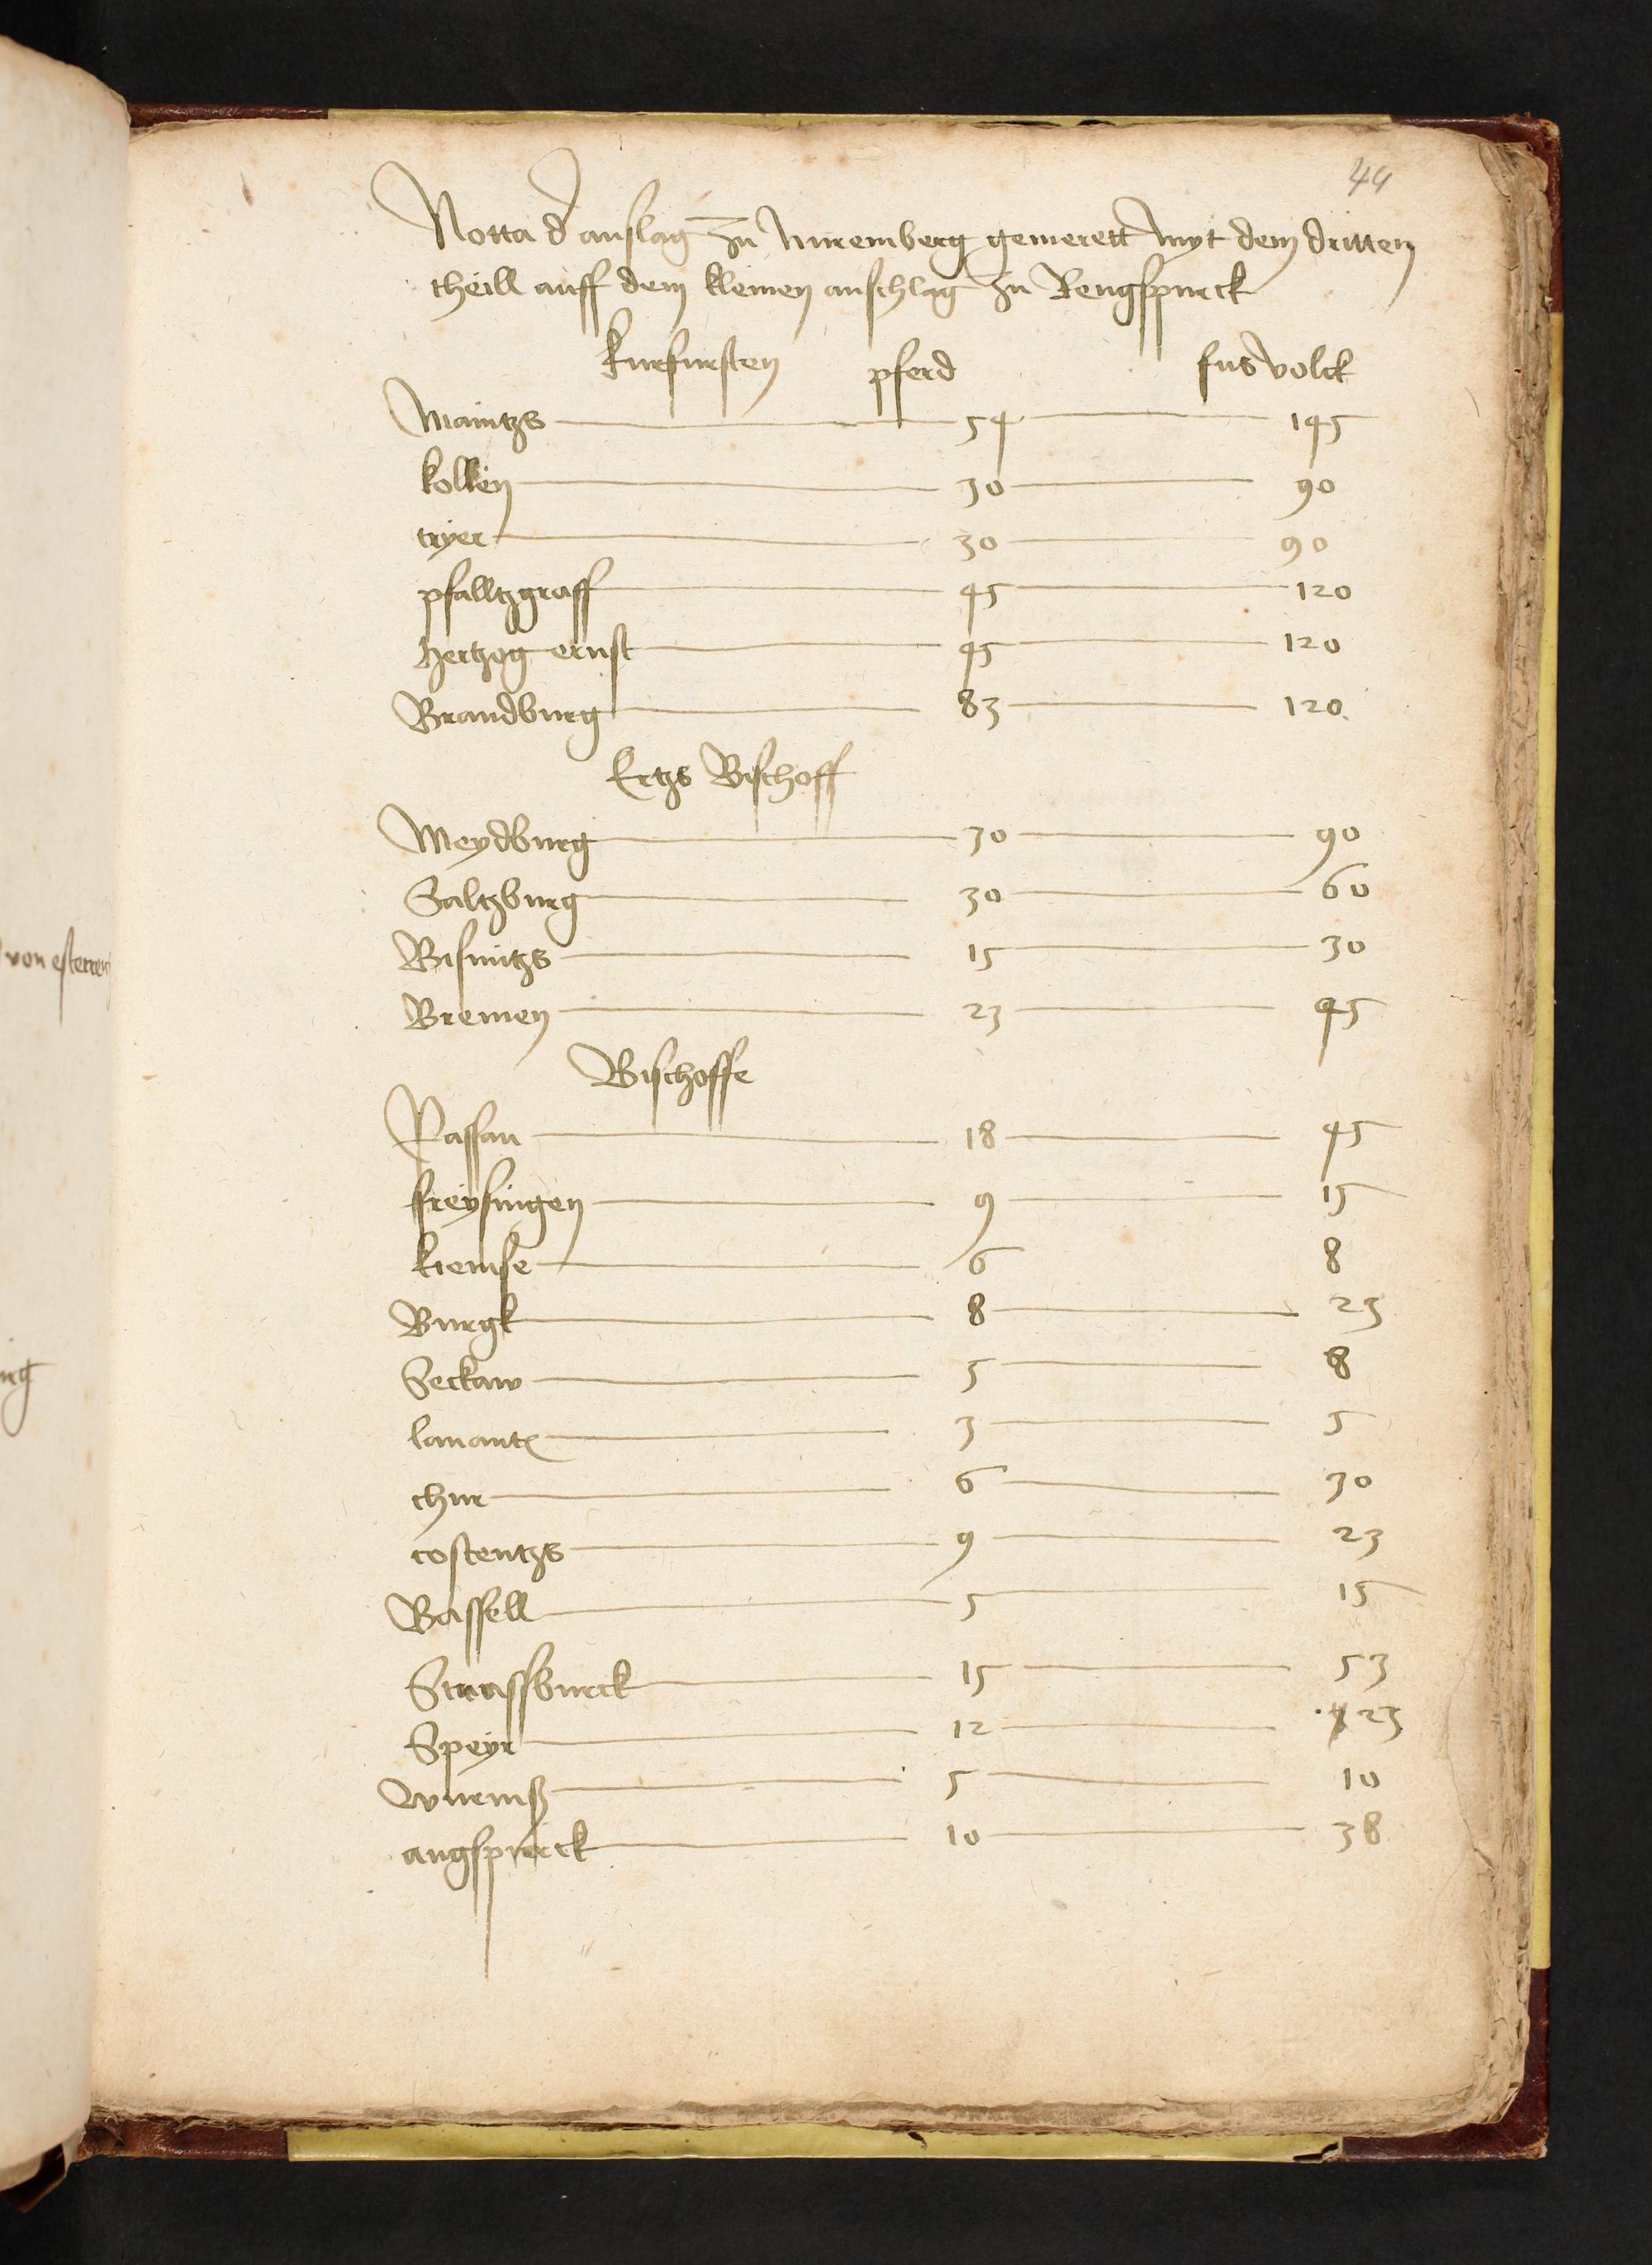 44
Notta d anslag zu Nuremberg gemerett myt dem dritten
theill auff dem kleinen anschlag zu Rengspurck
kurfursten pferd fusvolck
Maintzs 54 145
kollen 30 90
tryer 30 90
pfalltzgraff 45 120
hertzog ernst 45 120
Brandburg 83 120
Ertzs Bischoff
Meydburg 30 90
Saltzburg 30 60
Bisintzs 15 30
Bremen 23 45
Bischoffe
Passau 18 45
freysingen 9 15
kiemse 6 8
Burgk 8 23
Seckaw 5 8
lauant 3 5
chur 6 30
costentzs 9 23
Bassell 5 15
Strassburck 15 53
Speyr 12 23
Wurmß 5 10
augspurck 10 38
von esterreich